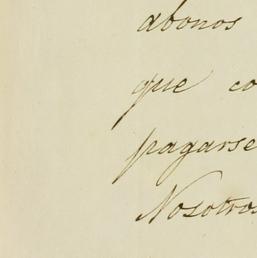 abonos
que co
pagarse
Nosotros